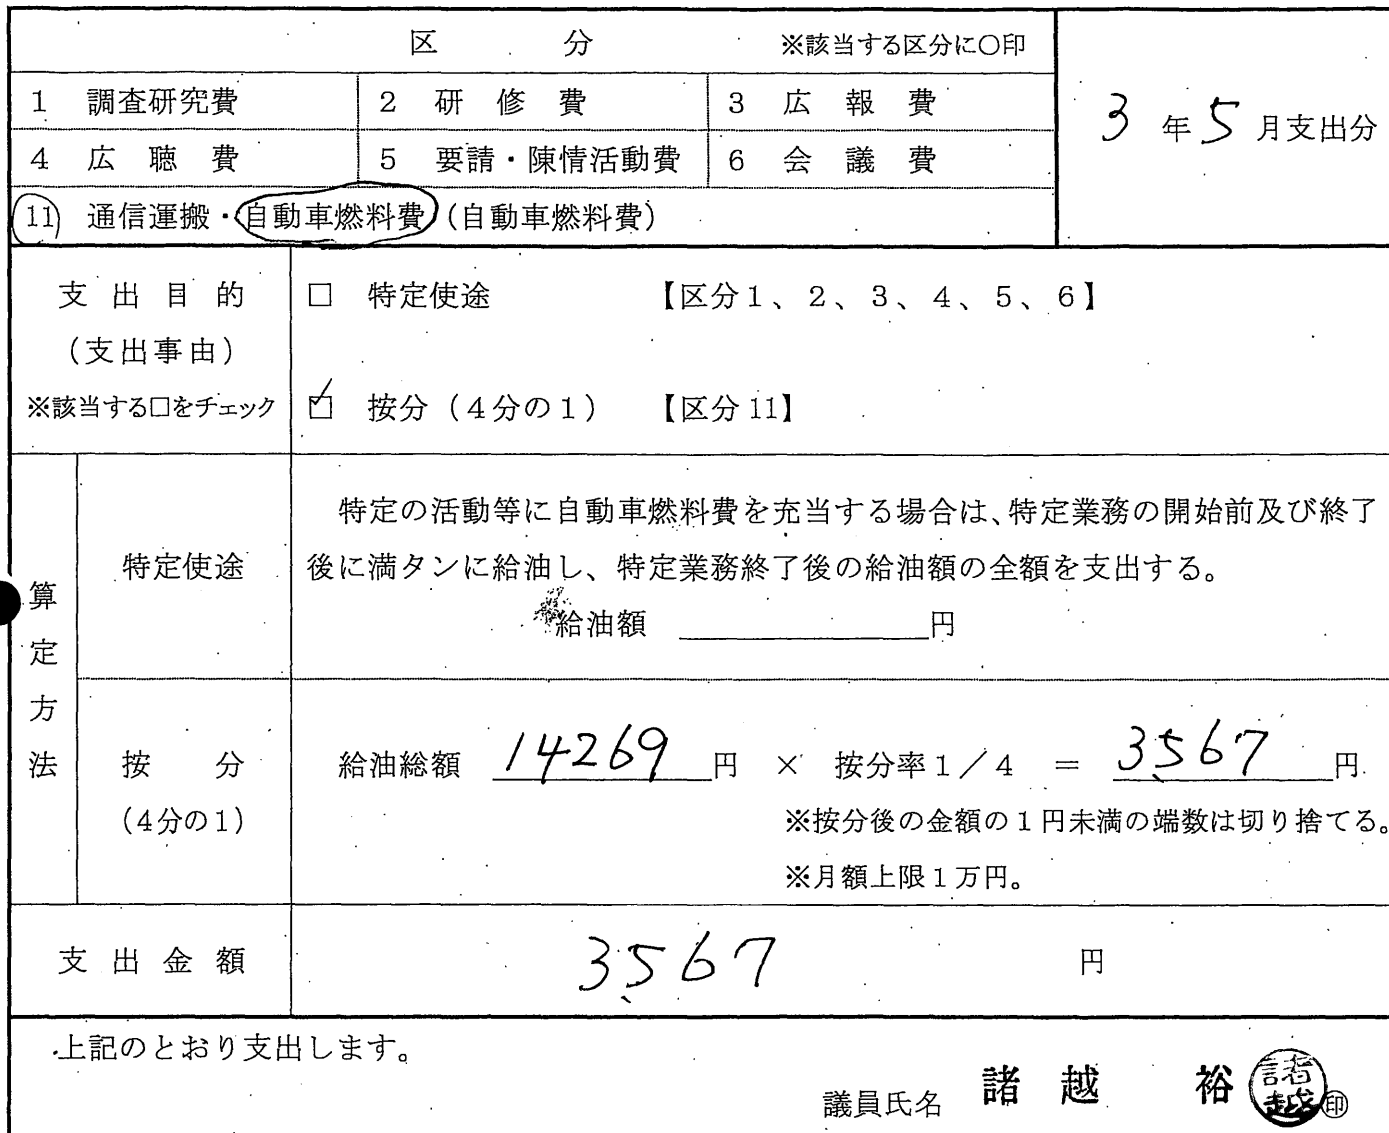 区　分　※該当する区分に〇印
3 年 5 月支出分
1 調査研究費 2 研修費 3 広報費
4 広聴費 5 要請・陳情活動費 6 会議費
11 通信運搬・自動車燃料費（自動車燃料費）
支出目的 □ 特定使途 【区分1、2、3、4、5、6】
（支出事由）
※該当する□をチェック ☑ 按分（4分の1） 【区分11】
算定方法
特定使途
特定の活動等に自動車燃料費を充当する場合は、特定業務の開始前及び終了
後に満タンに給油し、特定業務終了後の給油額の全額を支出する。
給油額 円
按分
（4分の1）
給油総額 14269 円 × 按分率1／4 ＝ 3567 円
※按分後の金額の1円未満の端数は切り捨てる。
※月額上限1万円。
支出金額 3567 円
上記のとおり支出します。
議員氏名 諸越 裕 諸越 ㊞